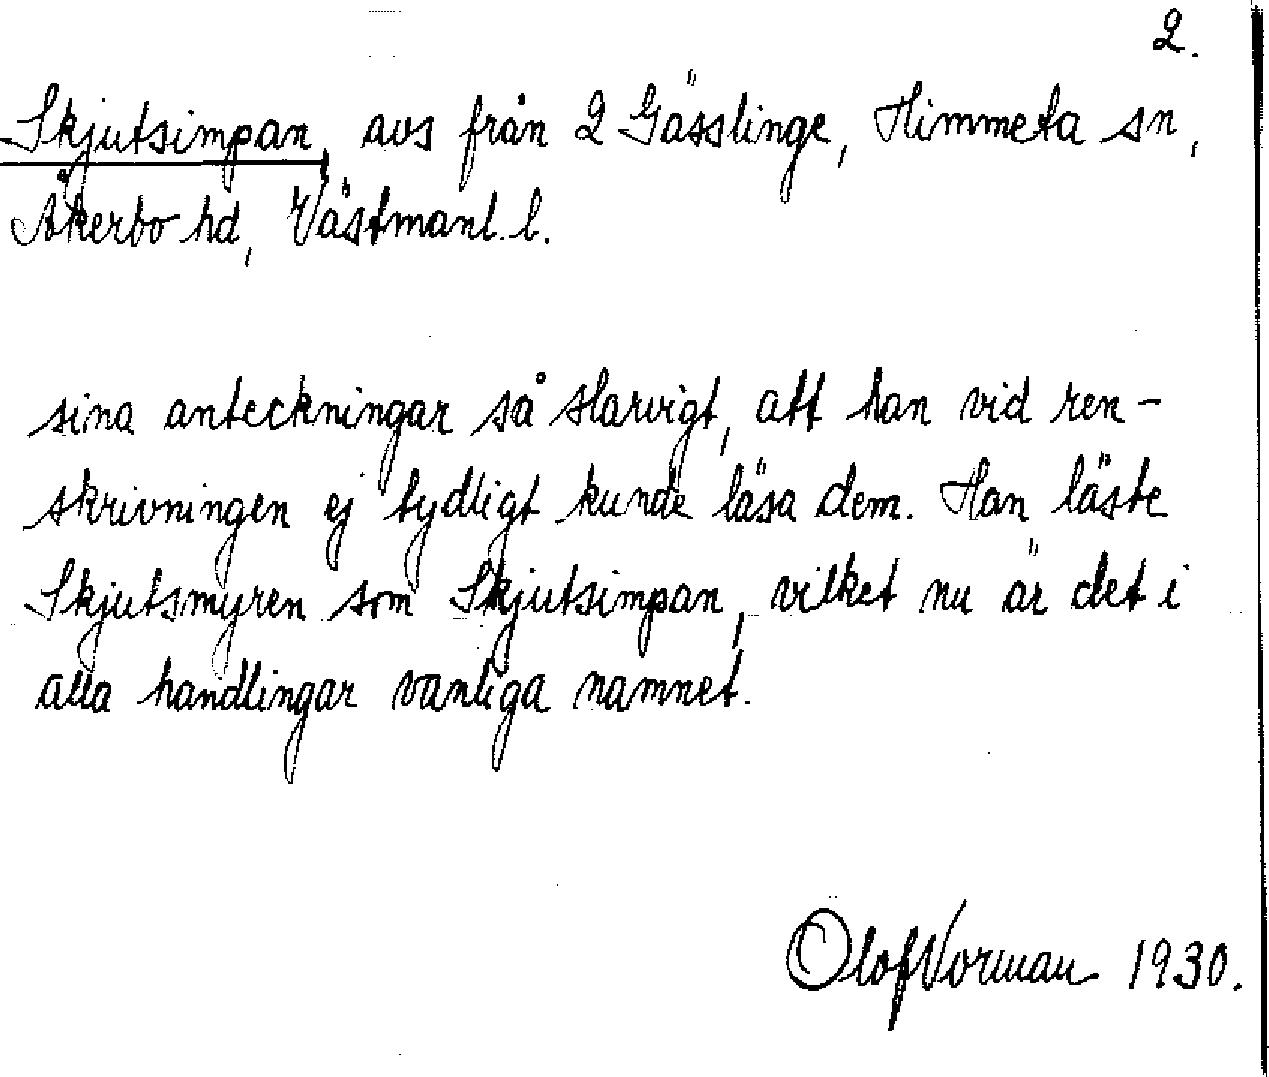 2.
Skjutsimpan, avs från 2 Gässlinge, Himmeta sn,
Åkerbo hd, Västmanl. l.
sina anteckningar så slarvigt, att han vid ren-
skrivningen ej tydligt kunde läsa dem. Han läste
Skjutsmyren som Skjutsimpan, vilket nu är det i
alla handlingar vanliga namnet.
Olof Norman 1930.